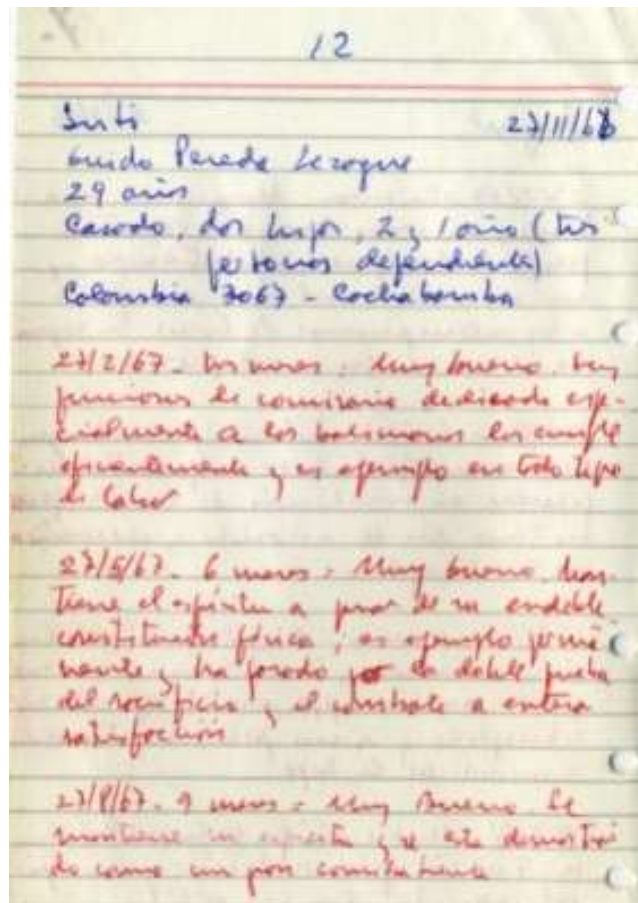 12
Inti 27/11/66
Guido Peredo Lezogue
29 años
Casado, dos hijos, 2 y 1 año (tres
personas dependientes)
Colombia 7067 - Cochabamba
27/2/67 - tres meses: Muy bueno. Sus
funciones de comisario dedicado espe-
cialmente a los bolivianos las cumple
eficientemente y es ejemplo en todo tipo
de labor
27/5/67 - 6 meses: Muy bueno. Man-
tiene el espíritu a pesar de su endeble
constitución física; es ejemplo perma
nente y ha pasado la doble prueba
del sacrificio y el combate a entera
satisfacción
27/8/67 - 9 meses: Muy Bueno Se
mantiene su espíritu y se está demostran
do como un gran combatiente